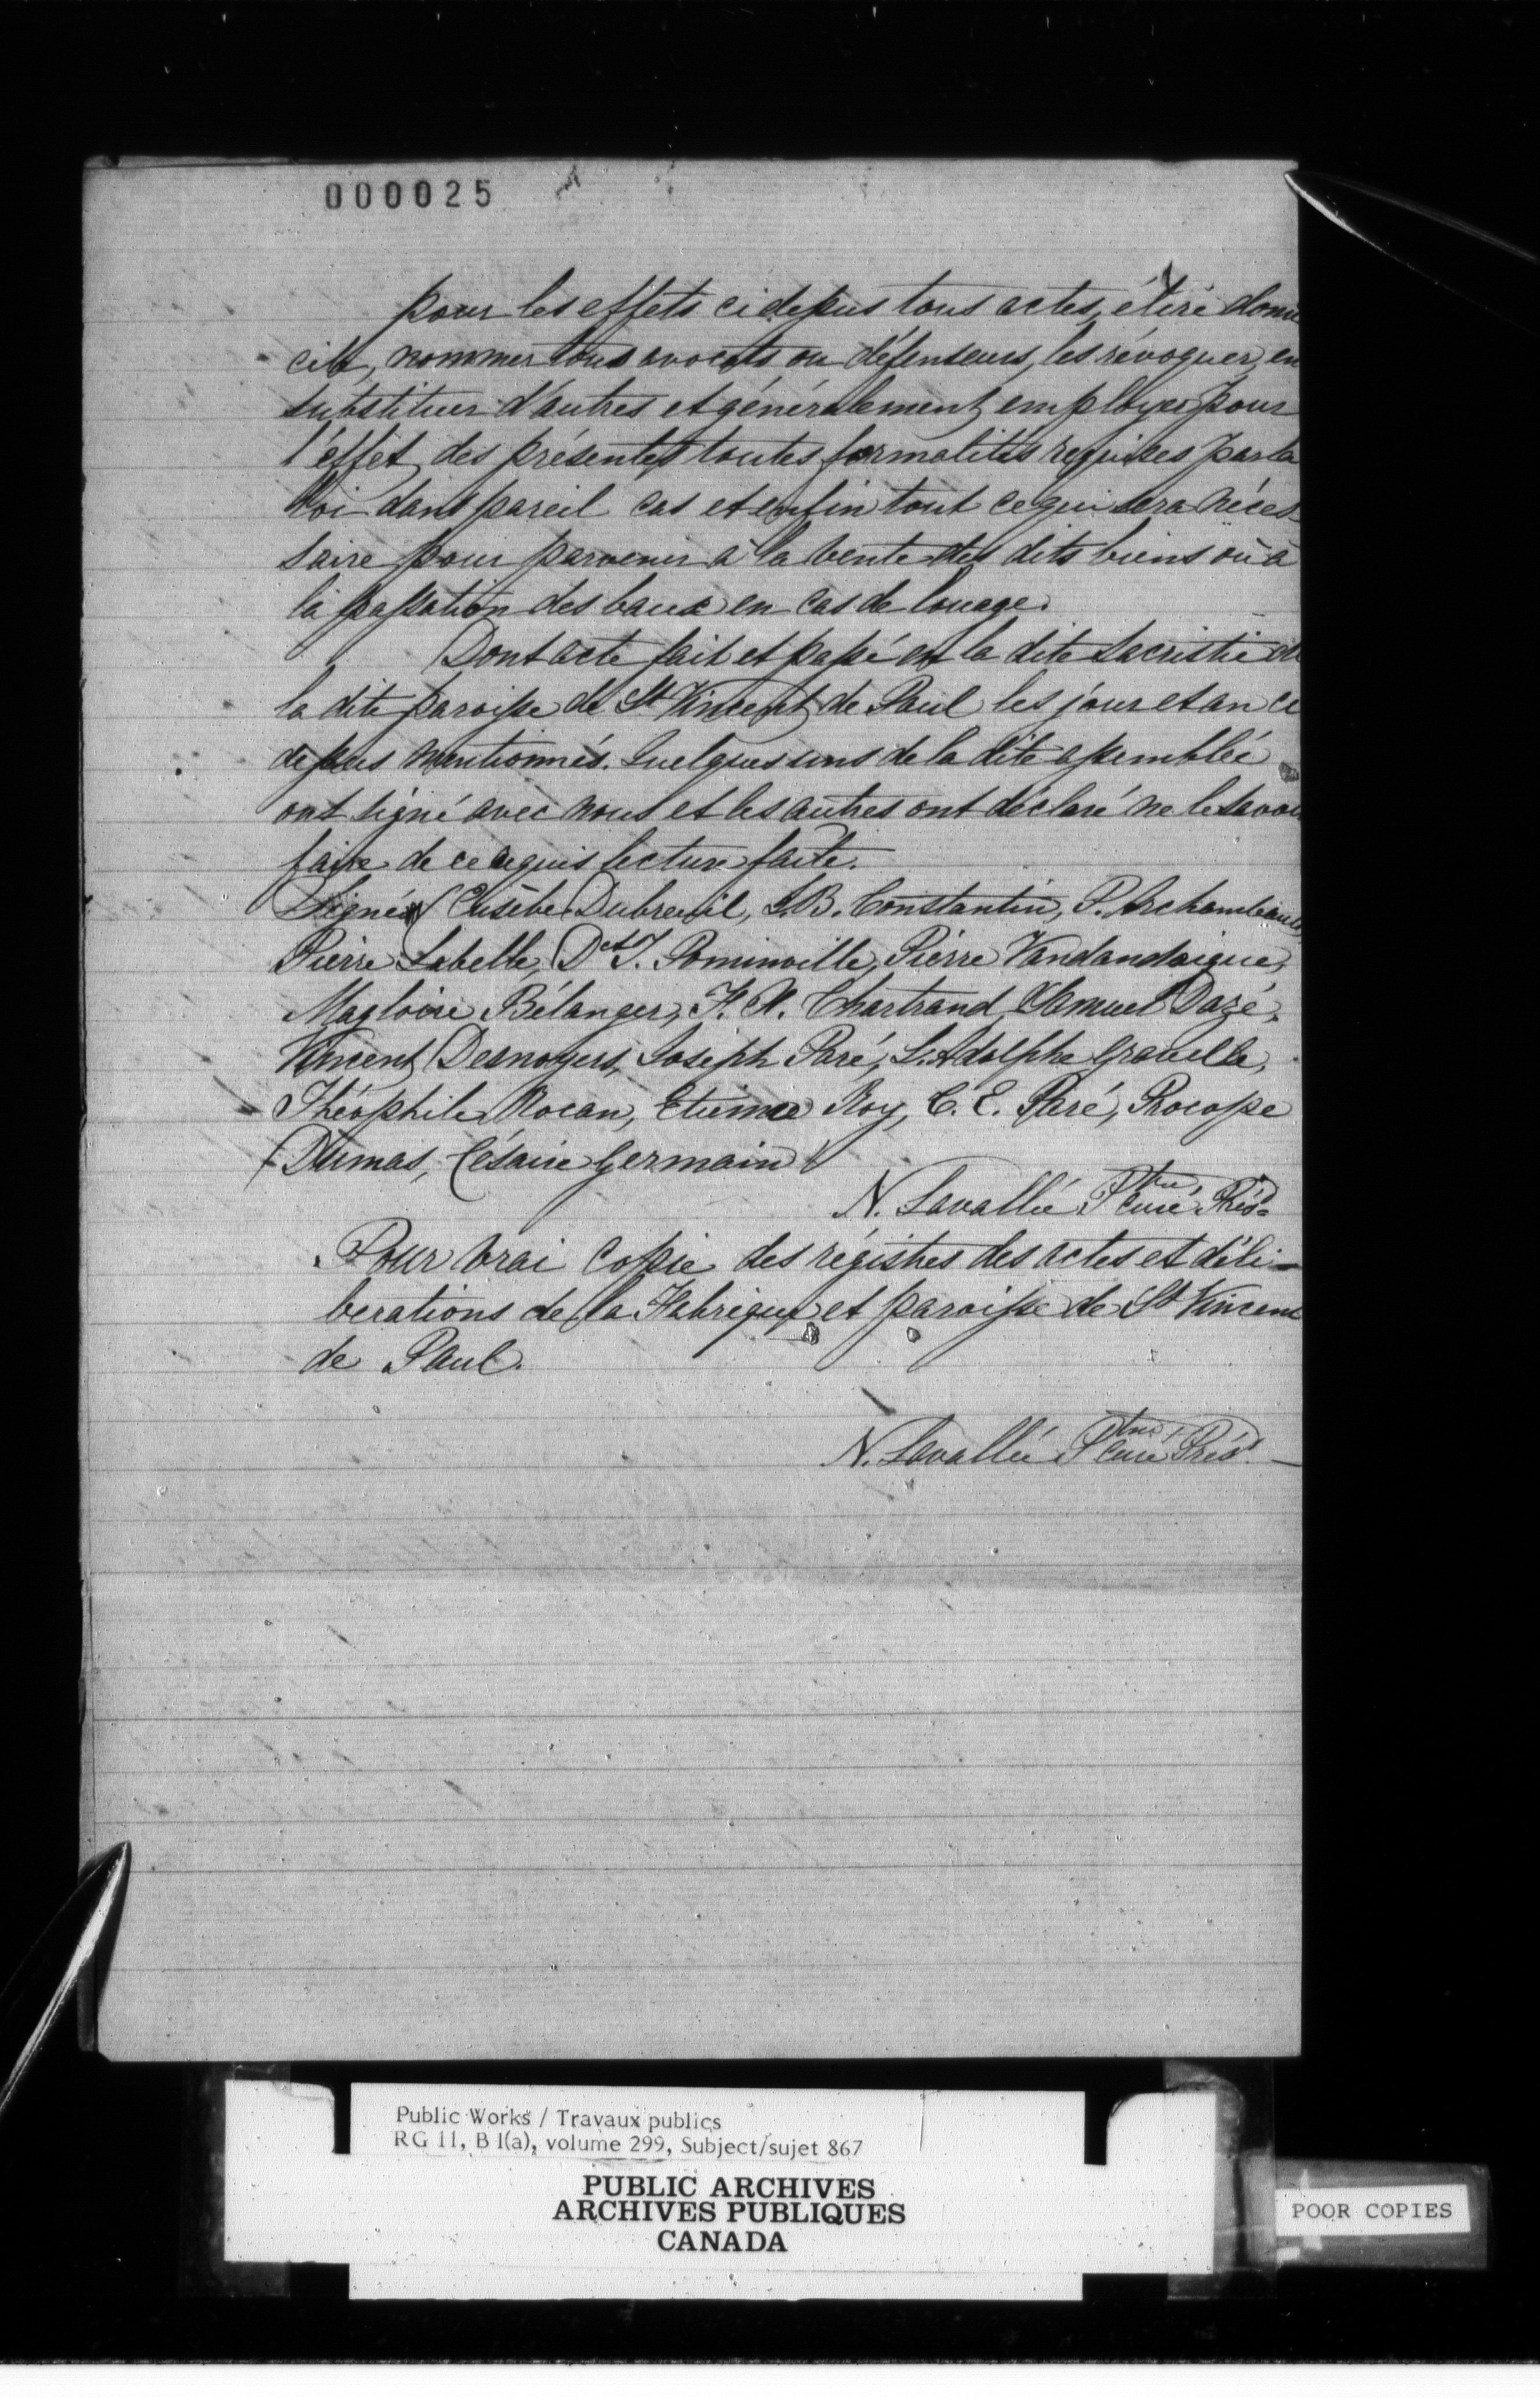 000025
pour les effets ci dessus tous actes, élire domi
cile, nommer tous avocats ou défenseurs, les révoquer, en
substituer d'autres et généralement employer pour
l'effet des présentes toutes formalités requises par la
loi dans pareil cas et enfin tout ce qui sera néces-
saire pour parvenir à la vente des dits biens où à
la passation des baux en cas de louage.
Dont acte fait et passé en la dite Sacristie de
la dite paroisse de St Vincent de Paul les jour et an ci
dessus mentionnés. Quelques uns de la dite assemblée
ont signé avec nous et les autres ont déclaré ne le savoir
faire de ce requis lecture faite.
Signés (Eusèbe Dubreuil, L.B. Constantin, P. Archambault,
Pierre Labelle, Dct J. Pominville, Pierre Vandandaigue,
Magloire Bélanger, F. X. Chartrand, Samuel Dazé,
Vincent Desnoyers, Joseph Paré, L. Adolphe Gravelle,
Théophile Rocan, Etienne Roy, C. E. Paré, Procope
Dumas, Césaire Germain
N. Lavallée Ptre, Curé, Prés.
Pour vrai copie des régistres des actes et déli-
berations de la Fabrique et paroisse de St Vincent
de Paul.
N. Lavallée Ptre, Curé Prést
Public Works / Travaux publics
RG 11, B 1(a), volume 299, Subject/sujet 867
PUBLIC ARCHIVES
ARCHIVES PUBLIQUES
CANADA
POOR COPIES